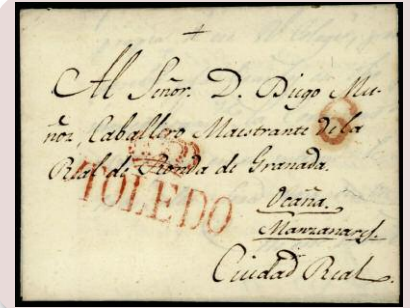 Al Señor. D. Diego Mu-
ñoz, Caballero Maestrante de la
Real de Ronda de Granada.
TOLEDO
Ocaña.
Manzanares.
Ciudad Real.
6